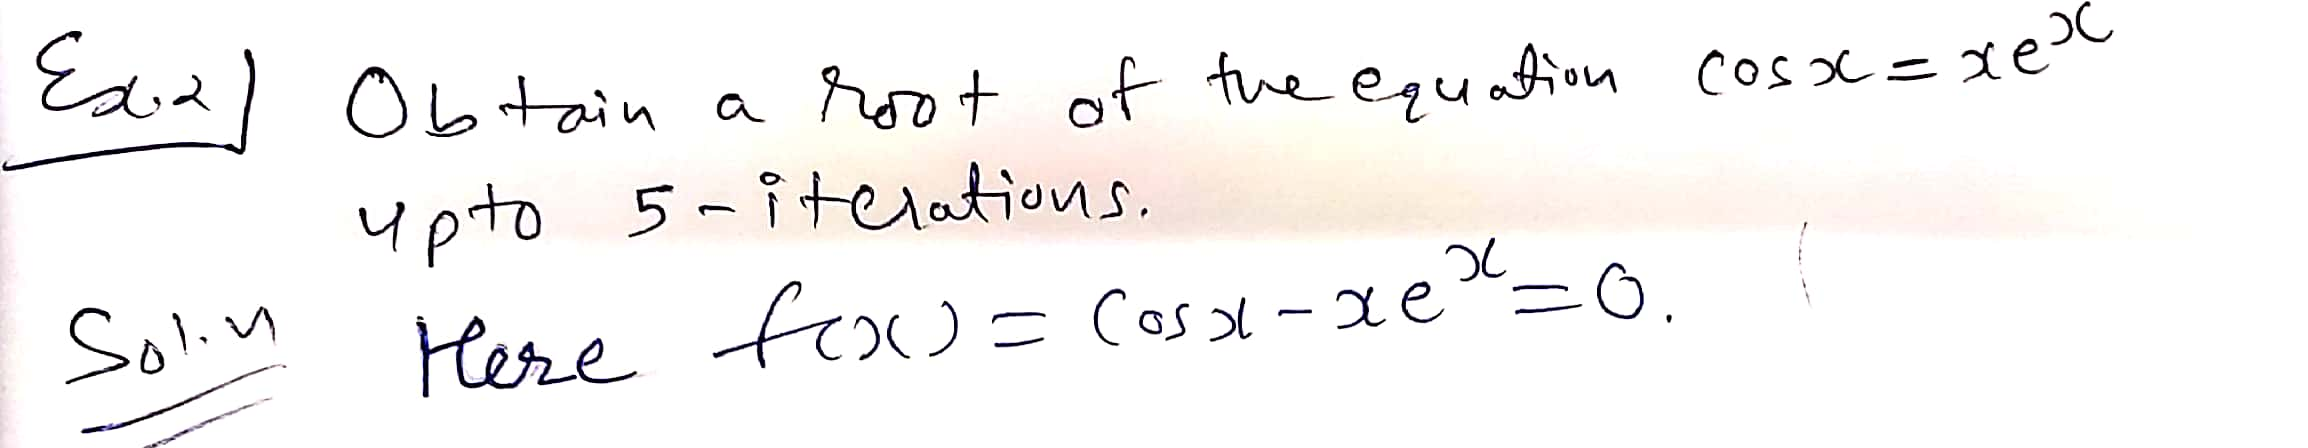 Ex.2] Obtain a root of the equation cosx = xeˣ
upto 5-iterations.
Sol.n Here f(x) = Cosx - xeˣ = 0.